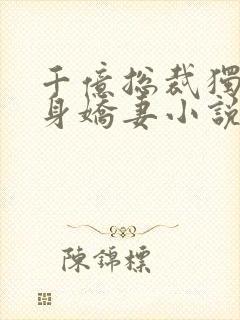 千億總裁獨
身嬌妻小說
陳錦標